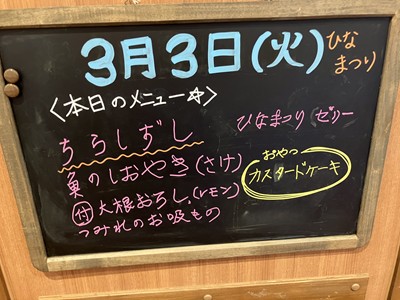 3月3日(火)ひな
まつり
<本日のメニュー☆>
ちらしずし
ひなまつり ゼリー
魚のしおやき(さけ)
付 大根おろし、(レモン)
つみれのお吸もの
おやつ
カスタードケーキ